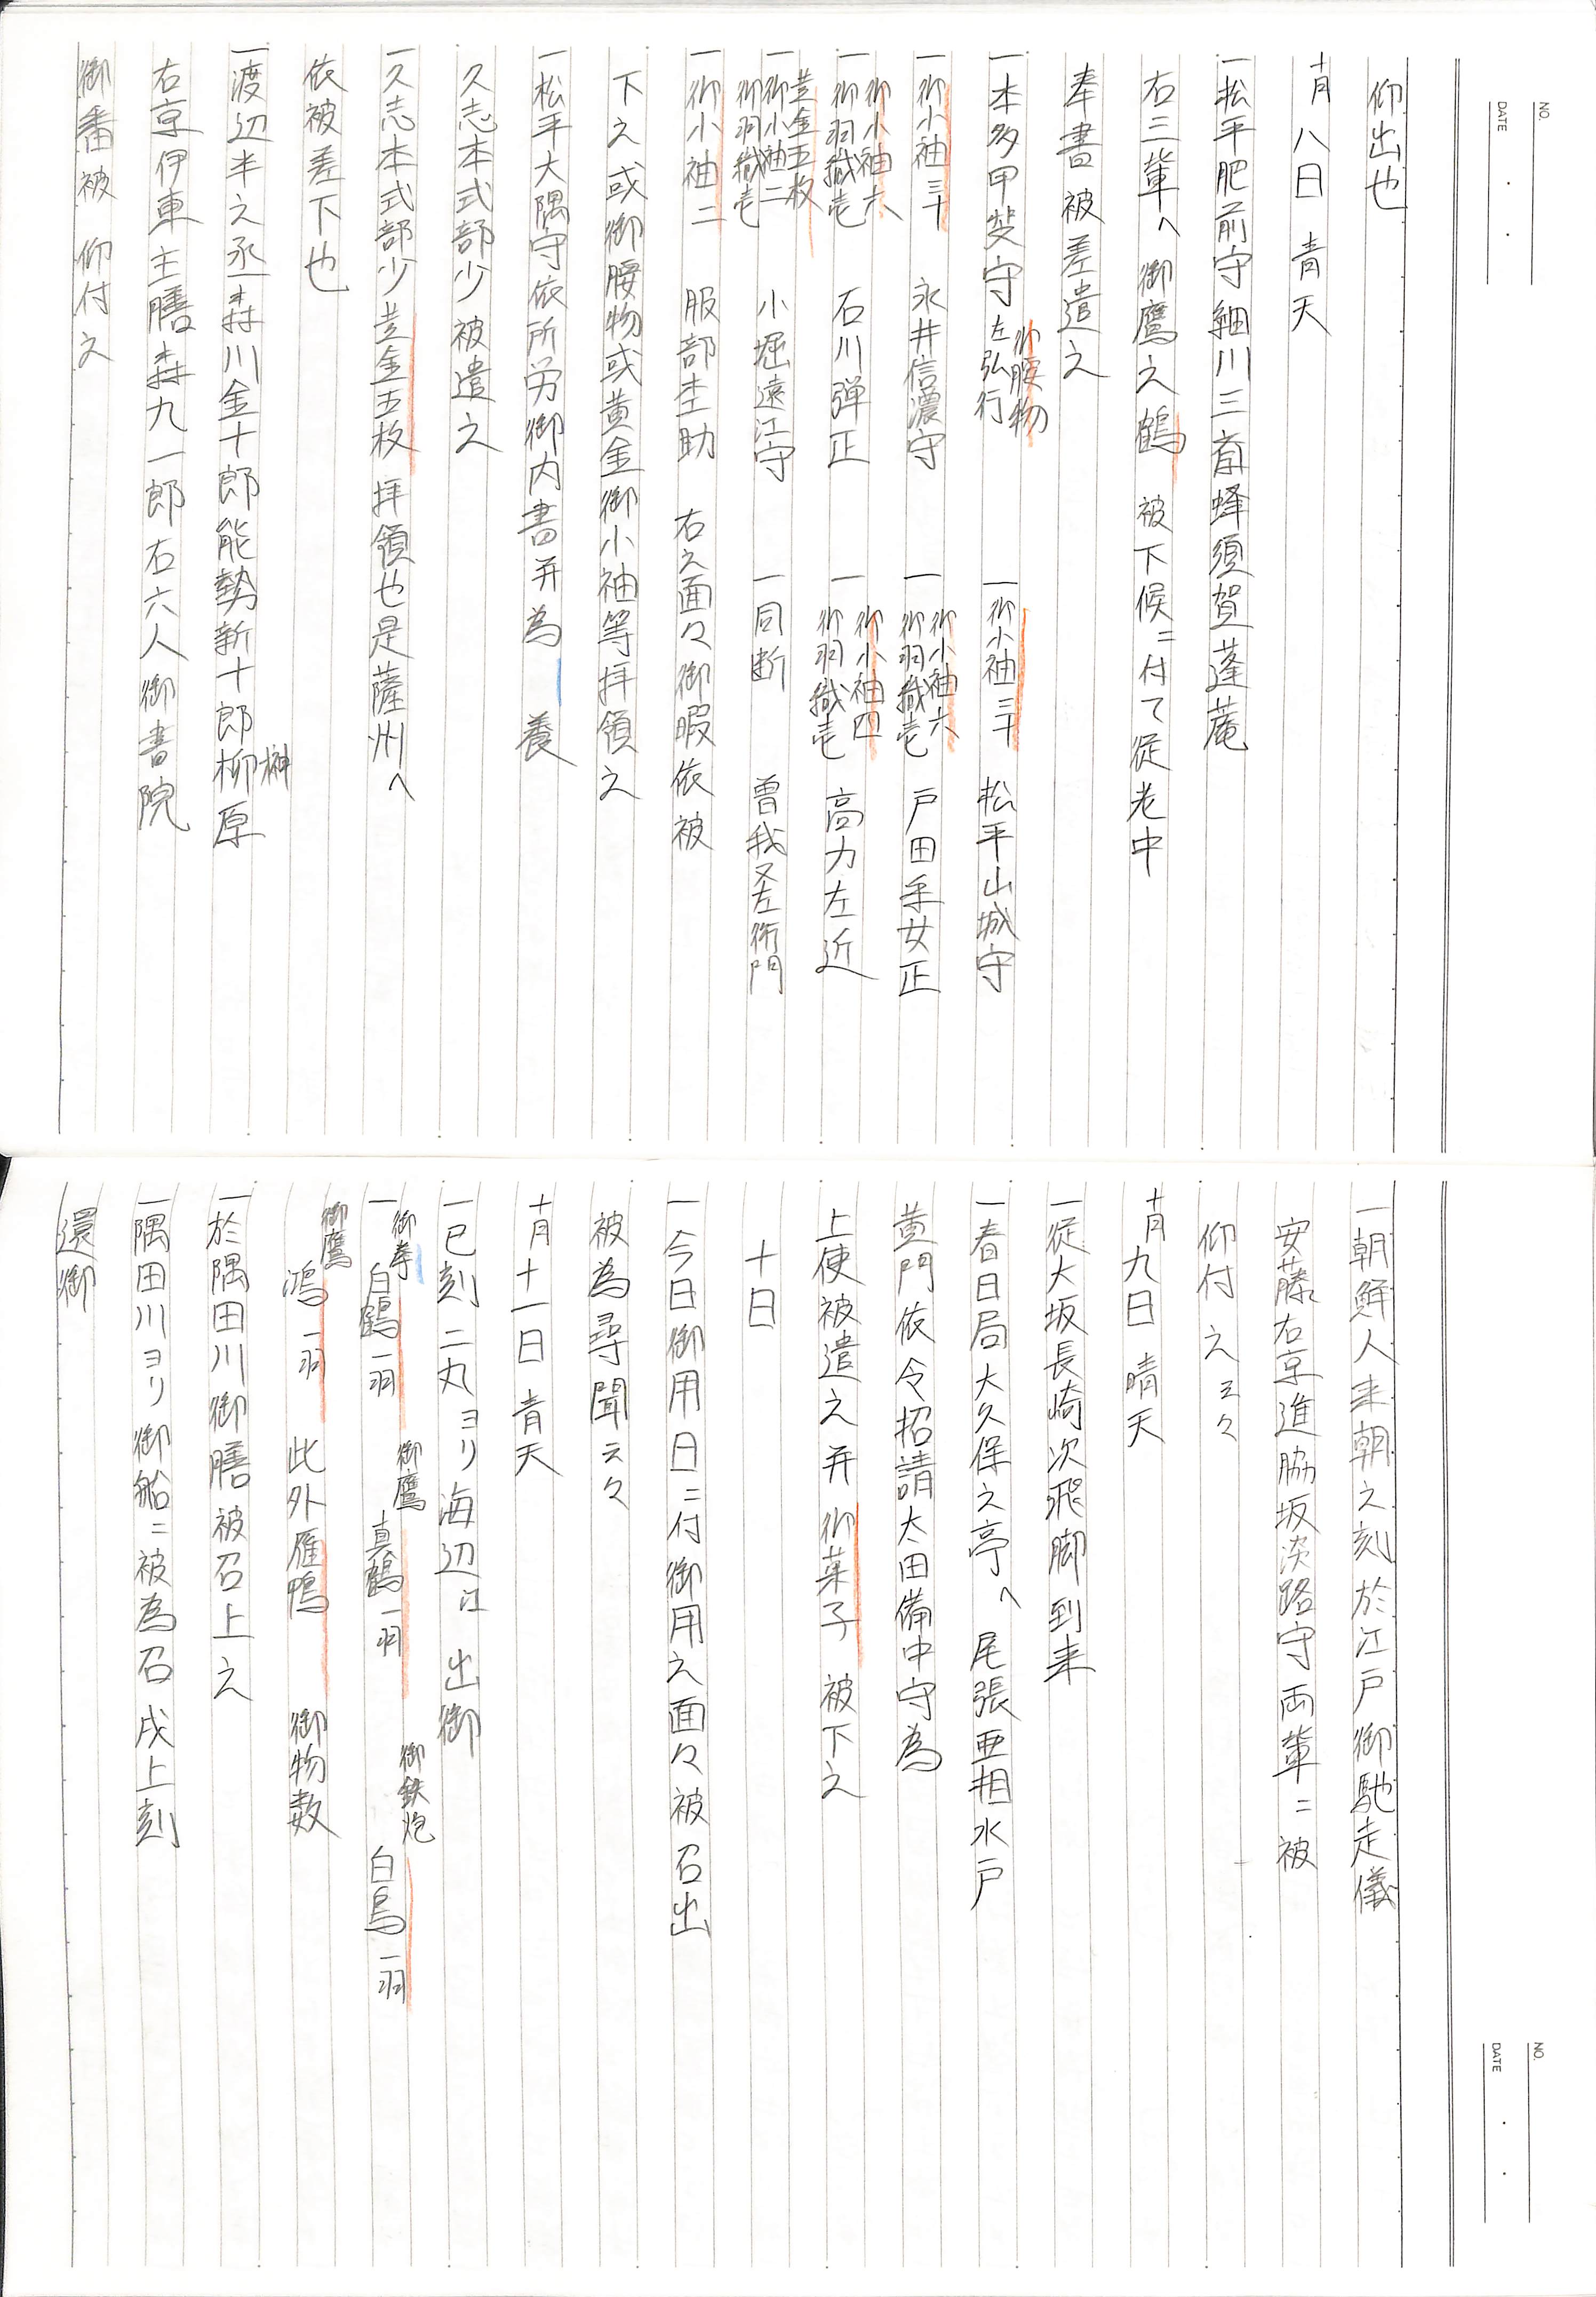 NO.
DATE
仰出也
十月八日 青天
一松平肥前守細川三斎蜂須賀蓬菴
右三輩へ御鷹之鶴 被下候ニ付て従老中
奉書被差遣之
一本多甲斐守 御腰物 左弘行 一御小袖三十 松平山城守
一御小袖三十 永井信濃守 一御小袖六 御羽織壱 戸田采女正
一御小袖六 御羽織壱 石川弾正 一御小袖四 御羽織壱 高力左近
一黄金五枚 御小袖二 御羽織壱 小堀遠江守 一同断 曽我又左衛門
一御小袖二 服部杢助 右之面々御暇依被
下之或御腰物或黄金御小袖等拝領之
一松平大隅守依所労御内書并為 養
久志本式部少被遣之
一久志本式部少黄金五枚拝領也是薩州へ
依被差下也
一渡辺半之丞森川金十郎能勢新十郎柳原
榊
右京伊東主膳森九一郎右六人御書院
御番被 仰付之
NO.
DATE
一朝鮮人来朝之刻於江戸御馳走儀
安藤右京進脇坂淡路守両輩ニ被
仰付之云々
十月九日 晴天
一従大坂長崎次飛脚到来
一春日局大久保之亭へ尾張亜相水戸
黄門依令招請太田備中守為
上使被遣之并御菓子被下之
十日
一今日御用日ニ付御用之面々被召出
被為尋聞云々
十月十一日 青天
一巳刻二丸ヨリ海辺江 出御
一御拳 白鶴一羽 御鷹 真鶴一羽 御鉄炮 白鳥一羽
御鷹 鴻一羽 此外雁鴨 御物数
一於隅田川御膳被召上之
一隅田川ヨリ御船ニ被為召戌上刻
還御